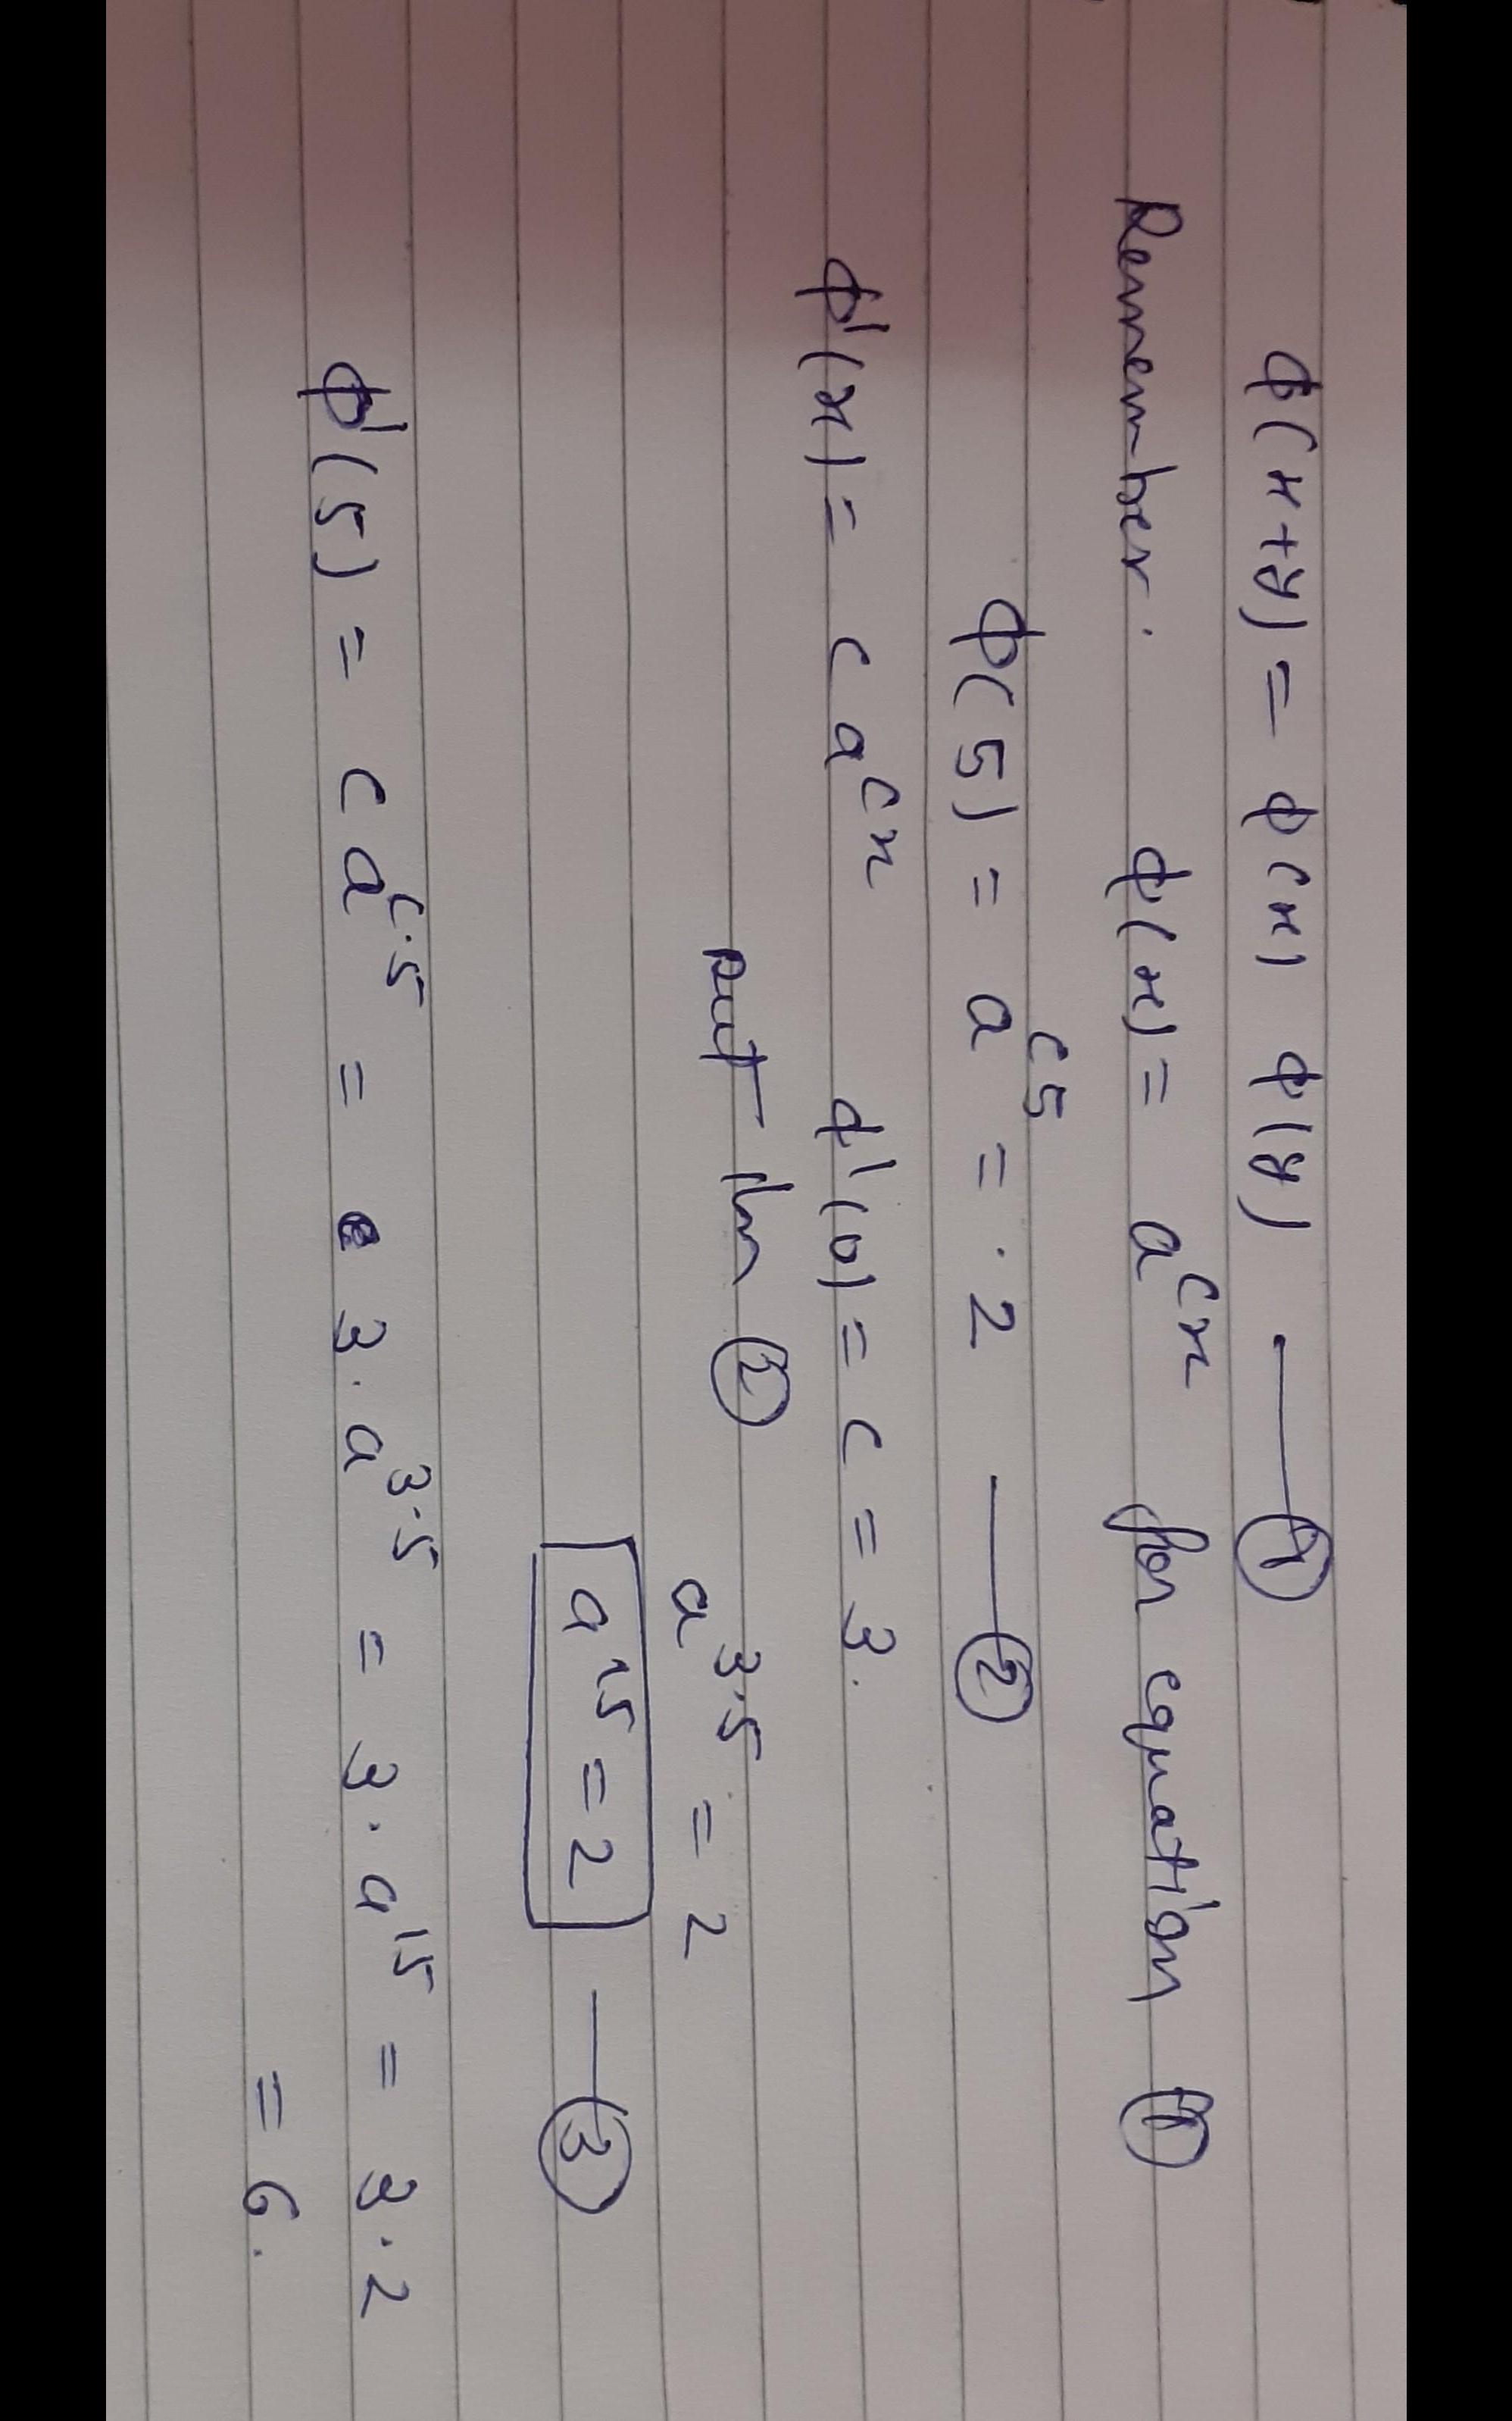 ϕ(x+y) = ϕ(x) ϕ(y) — ①
Remember. ϕ(x) = a^{cx} for equation ①
ϕ(5) = a^{c5} = 2 — ②
ϕ'(x) = c a^{cx} ϕ'(0) = c = 3.
put in ②
a^{3.5} = 2
a^{15} = 2 — ③
ϕ'(5) = c a^{c.5} = 3. a^{3.5} = 3. a^{15} = 3.2
= 6.